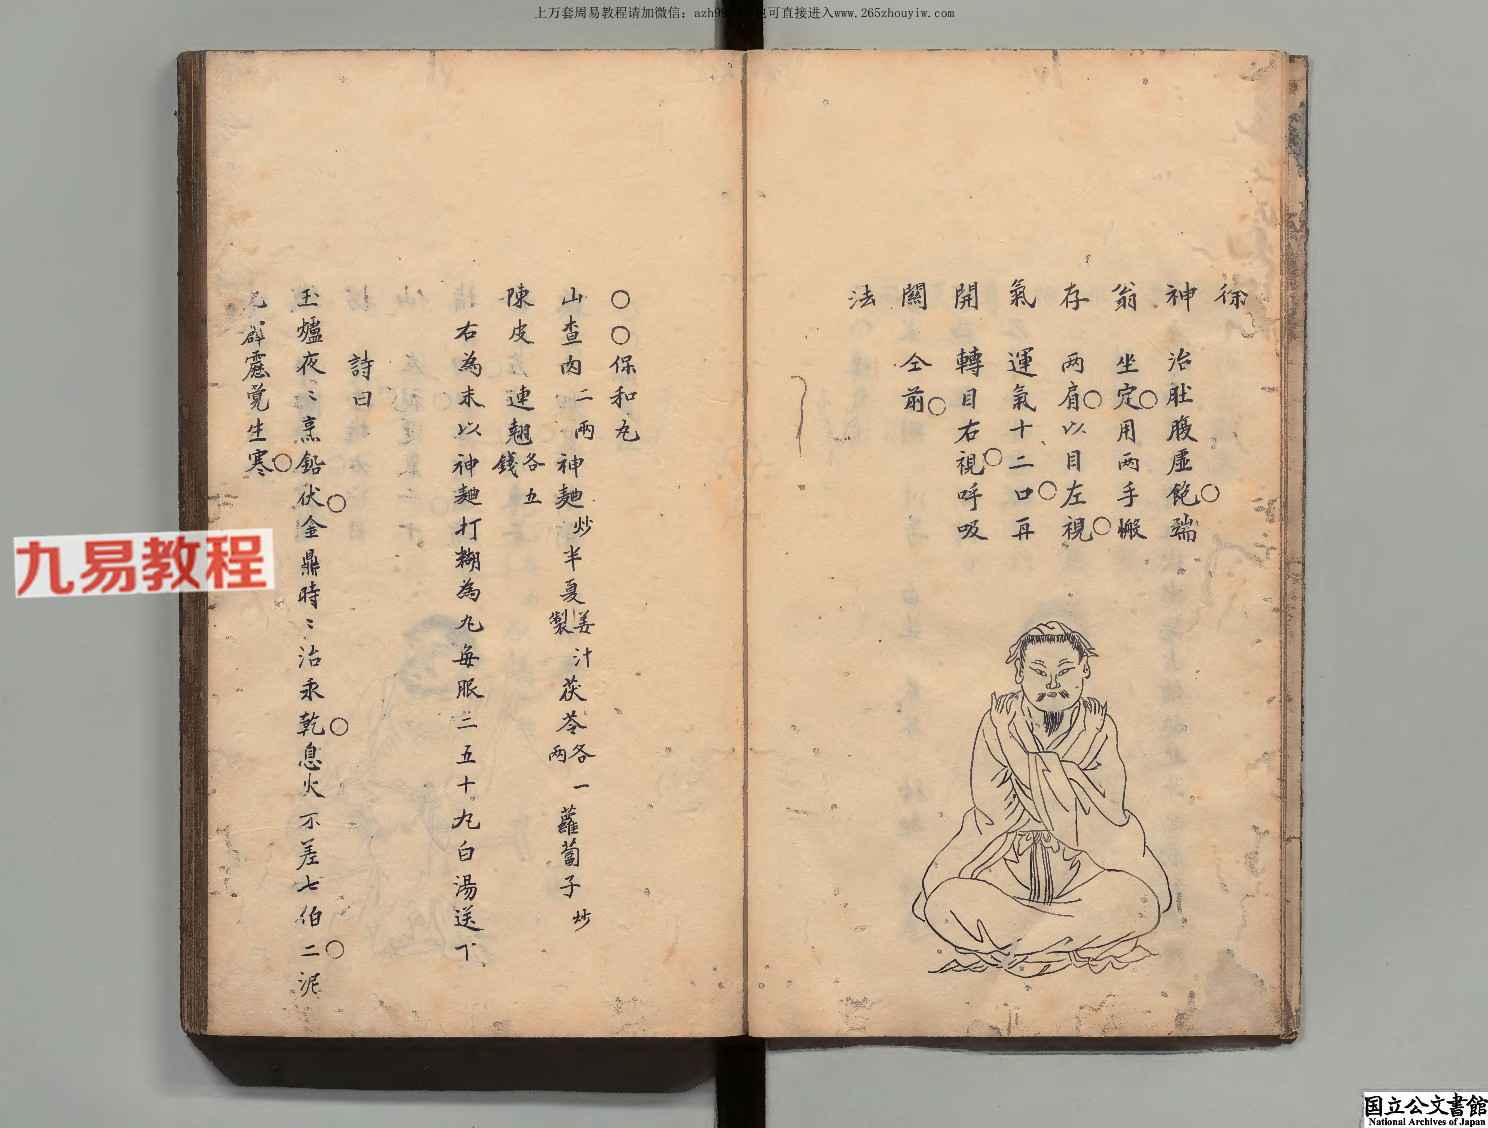 上万套周易教程请加微信：azh9 也可直接进入www.265zhouyiw.com
徐
神 治肚腹虛飽○端
翁 坐定○用兩手搬
存 两肩○以目左視○
氣 運氣十二口○再
開 轉目右視○呼吸
關 仝前○
法
○○保和丸
山查肉二兩 神麯炒 半夏姜汁製 茯苓各一兩 蘿蔔子炒
陳皮 連翹各五錢
右為末以神麯打糊為丸每服三五十丸白湯送下
詩曰
玉爐夜〻烹鉛伏○金鼎時〻治汞乾○息火不差七伯二○泥
丸霹靂覺生寒○
九易教程
国立公文書館
National Archives of Japan